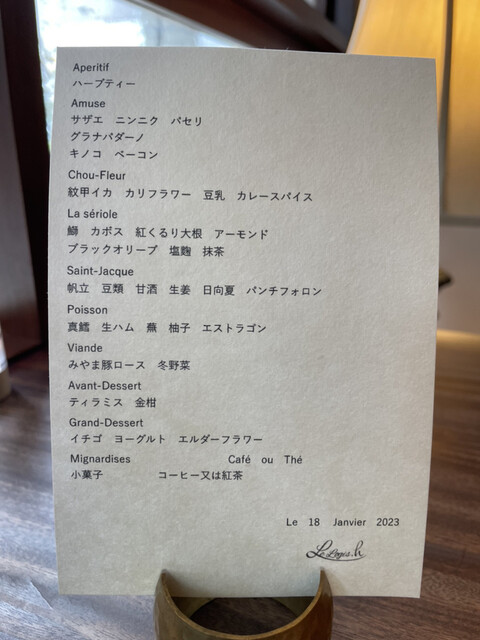 Aperitif
ハーブティー
Amuse
サザエ　ニンニク　パセリ
グラナパダーノ
キノコ　ベーコン
Chou-Fleur
紋甲イカ　カリフラワー　豆乳　カレースパイス
La sériole
鰤　カボス　紅くるり大根　アーモンド
ブラックオリーブ　塩麹　抹茶
Saint-Jacque
帆立　豆類　甘酒　生姜　日向夏　パンチフォロン
Poisson
真鱈　生ハム　蕪　柚子　エストラゴン
Viande
みやま豚ロース　冬野菜
Avant-Dessert
ティラミス　金柑
Grand-Dessert
イチゴ　ヨーグルト　エルダーフラワー
Mignardises　Café　ou　Thé
小菓子　コーヒー又は紅茶
Le　18　Janvier　2023
Le Logis.h